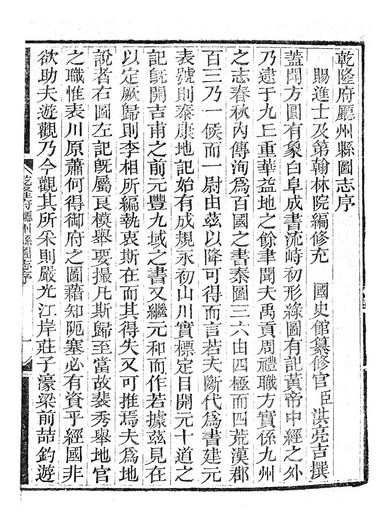 乾隆府廳州縣圖志序
賜進士及第翰林院編修充 國史館纂修官臣洪亮吉撰
蓋聞方圓有象白阜成書流峙初形綠圖有記黃帝中經之外
乃逮于九丘重華益地之餘聿聞夫禹貢周禮職方實係九州
之志春秋內傳洵為百國之書秦圖三六由四極而四荒漢郡
百三乃一候而一尉由茲以降可得而言若夫斷代為書建元
表號則泰康地記始有成規永初山川實標定目開元十道之
記旣開吉甫之前元豐九域之書又繼元和而作若據茲見在
以定厥歸則李相所編執袁斯在而其得失又可推焉夫為地
說者右圖左記旣屬良模舉要撮凡斯歸至當故裴秀舉地官
之職惟表川原蕭何得御府之圖藉知阨塞必有資乎經國非
欲助夫遊觀乃今觀其所采則嚴光江岸莊子濠梁前喆釣遊
乾隆府廳州縣圖志序